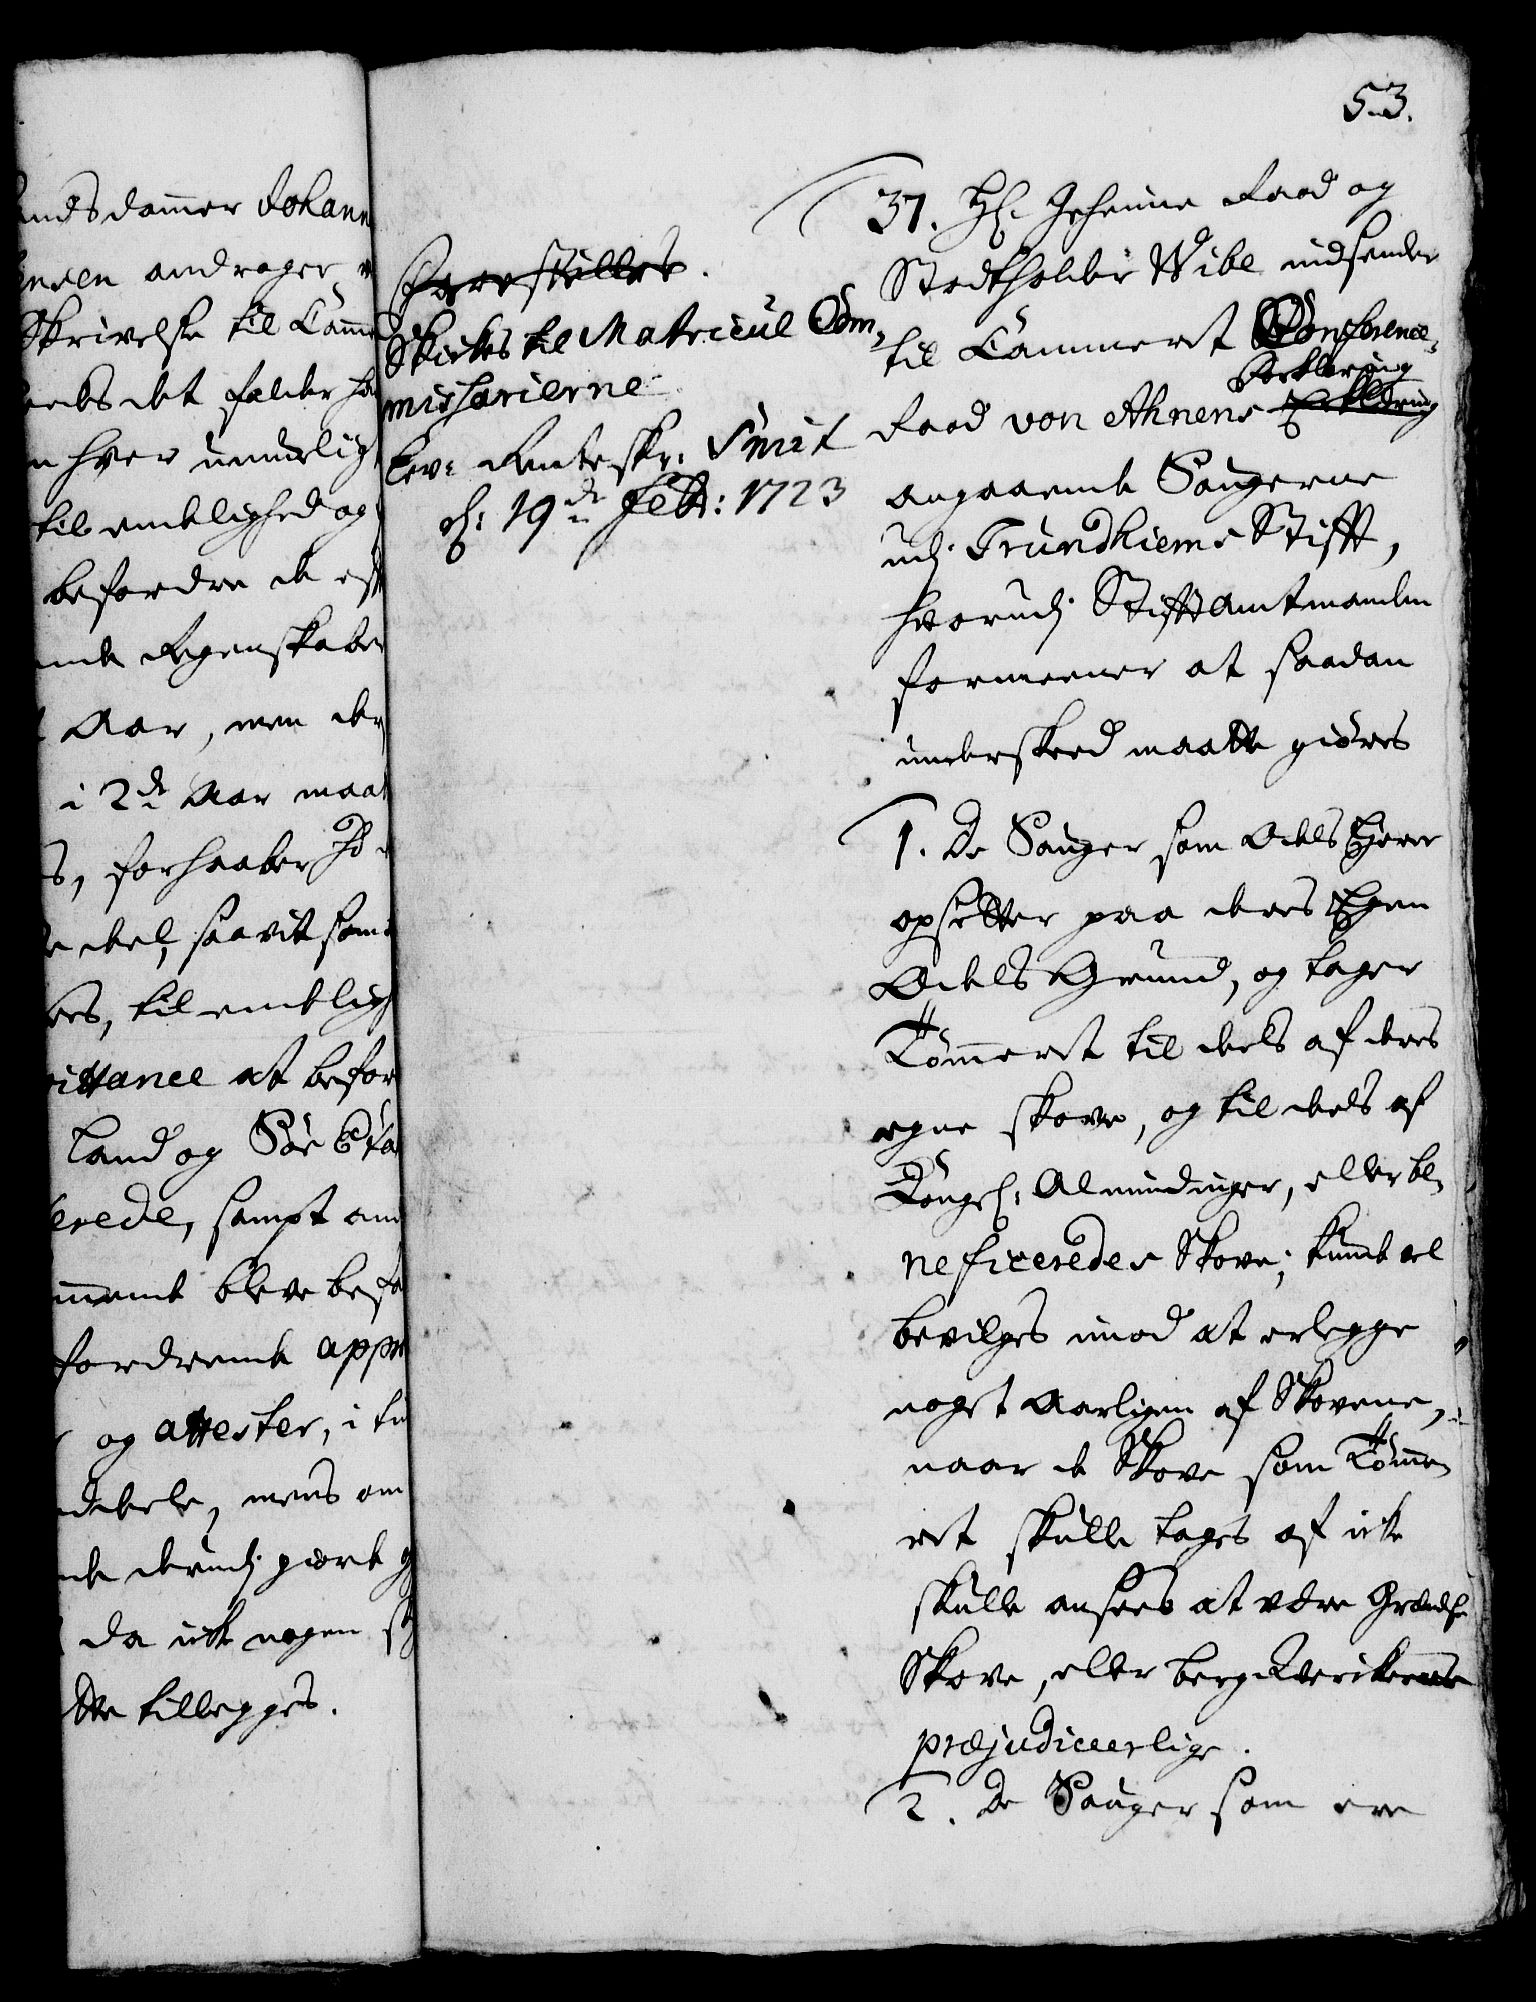 53.
ands dommer Johann
ensen andrager
Skrivelse til Camme
det falder
hver
til endelighed og
befordre de
ende Regenskaber
Aar, men der
i 2de Aar maat
s, forhaaber
deel, saavit som
res, til endelig
ittance at befor
Land og Söe Eta
erede, sampt an
ment bleve befo
fordrende appro
og attester, i
mens om
de derudj giorde
da icke nogen
tillegges.
Forestilles.
Skickes til Matricul Com-
missarierne
lev: Renteskr: Smit
d: 19de Febr: 1723
37. Hr. Geheime Raad og
Stadtholder Wibe indsender
til Cammeret Conference-
Raad von Ahnens Erklæring
Forklaring
angaaende Saugerne
udj Trundhiems Stifft,
hvorudj Stifftamtmanden
formeener at saadan
underskeed maatte giöres
1. De Sauger som Odels Eyere
opsetter paa deres Egen
Odels Grund, og tager
Tömmeret til deels af deres
egne skove, og til deels af
Kongel: Almindinger, eller be-
neficeredes Skove, kunde vel
bevilges imod at erlegge
noget Aarligen af Skovene,
naar de Skove som Tömme-
ret skulle tages af icke
skulle ansees at være Grændse
Skove, eller bergverckerne
præjudiceerlige.
2. De Sauger som ere